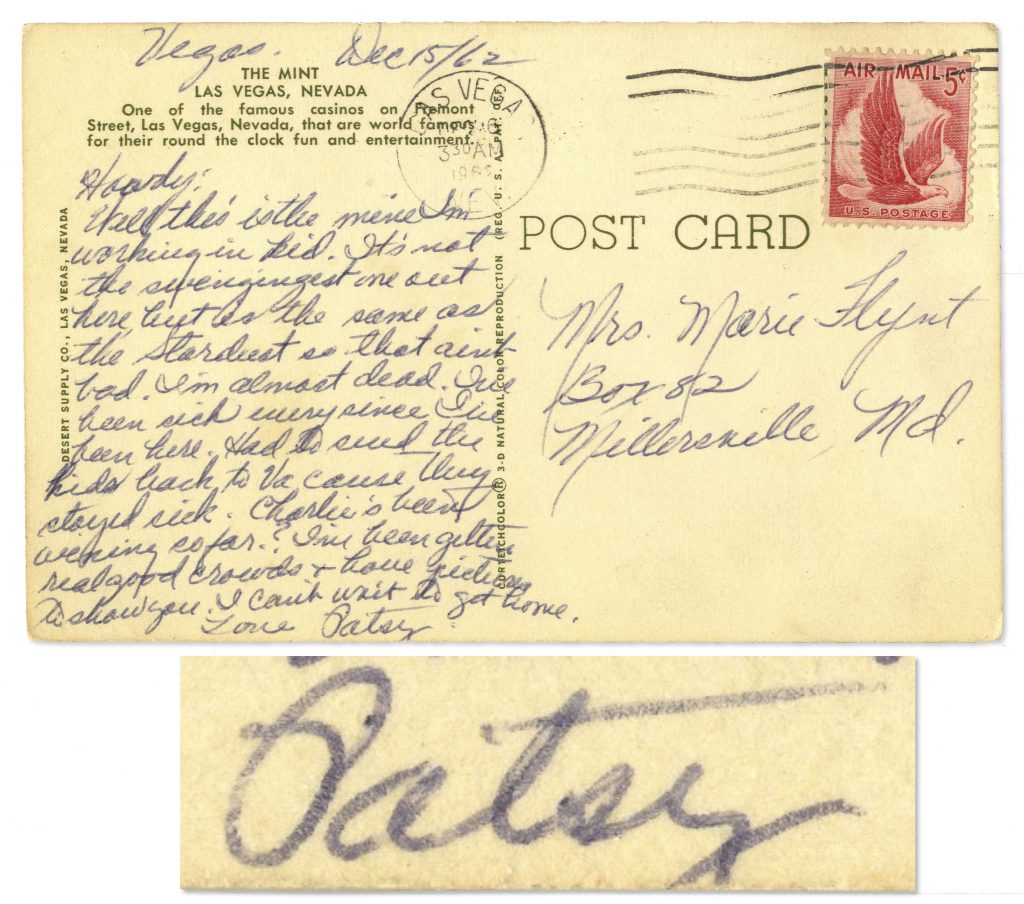 Vegas. Dec 15/62
THE MINT
LAS VEGAS, NEVADA
One of the famous casinos on Fremont
Street, Las Vegas, Nevada, that are world famous
for their round the clock fun and entertainment.
Howdy:
Well this is the mine I'm
working in kid. It's not
the swingingest one out
here, but is the same as
the Stardust so that aint
bad. I'm almost dead. I've
been sick every since I've
been here. Had to send the
kids back to Va cause they
stayed sick. Charlie's been
wining so far.? I've been gitten
real good crowds + have pictures
to show you. I can't wait to get home.
Love Patsy
DESERT SUPPLY CO., LAS VEGAS, NEVADA
CURTEICHCOLOR® 3-D NATURAL COLOR REPRODUCTION (REG. U. S. A. PAT. OFF.)
LAS VEGAS
3 30 AM
NEV
AIR MAIL 5¢
U.S. POSTAGE
POST CARD
Mrs. Marie Flynt
Box 82
Millersville, Md.
Patsy